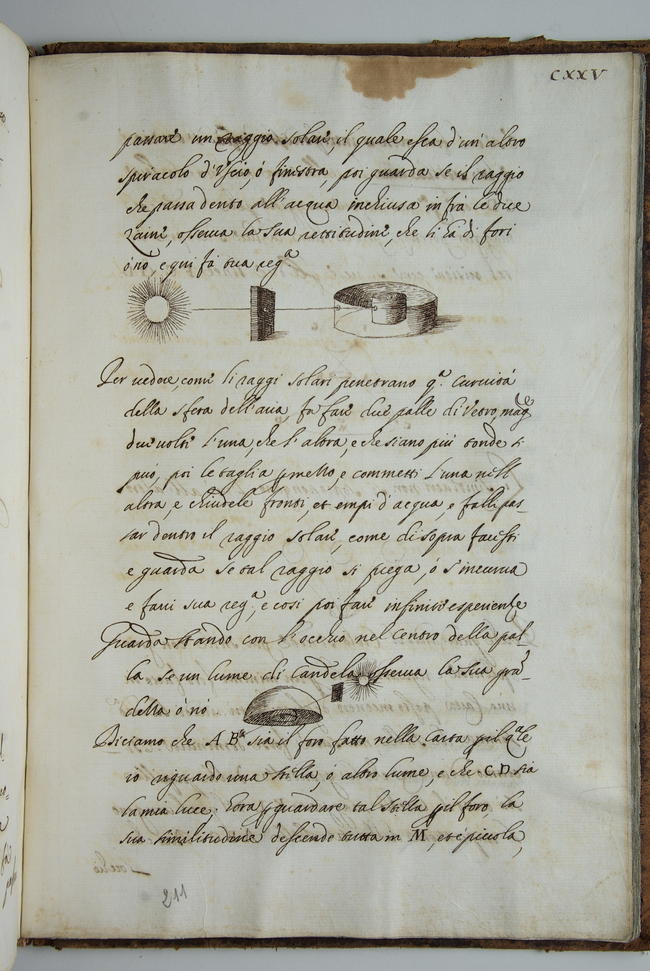 CXXV
passare un raggio solare, il quale esca d'un altro
spiracolo d'Uscio, ó finestra, poi guarda se il raggio
che passa dento all'acqua inchiusa infrà le due
Zaine, osserua la sua rettitudine, che li hà di fori
ó nò, e qui fà tua reg.ᵃ
Per uedere, come li raggi solari penetrano q.ᵃ curuità
della sfera dell'aria, fa fare due palle di Vetro, mag.ᵉ
due uolte l'una, che l'altra, e che siano più tonde si
può, poi le taglia p mezzo, e commetti l'una nell'
altra, e chiudele fronti, et empi d'acqua e falli pas-
sar dentro il raggio solare, come di sopra facesti
e guarda se tal raggio si piega, ó s'incurua
e farai sua reg.ᵃ, e così poi fare infinite esperientie
Guarda stando con l'occhio nel centro della pal-
la se un lume di candela osserua la sua gra-
delta ó nò
Diciamo che A Bᵃ sia il foro fatto nella carta pel q.ᵃle
io riguardo una stella, ó altro lume, e che C D sia
la mia luce; hora p guardare tal stella pel foro, la
sua similitudine descende tutta in M et è piccola,
211